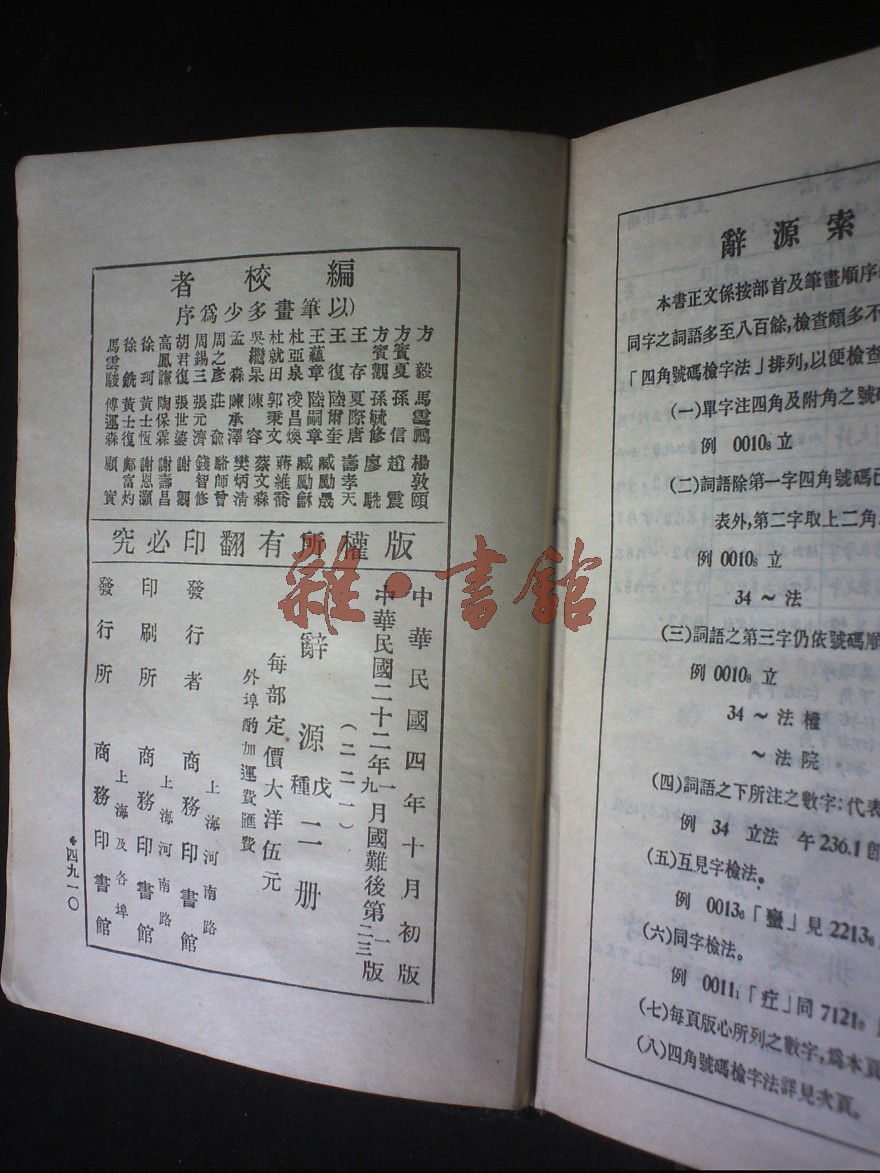 編校者
(以筆畫多少為序)
方毅 馬雲鵬 楊敦頤
方賓夏 孫信 趙震
方賓觀 孫毓修 廖駫
王存 夏際唐 壽孝天
王復 陸爾奎 臧勵晟
王蘊章 陸嗣章 臧勵龢
杜亞泉 凌昌煥 蔣維喬
杜就田 郭秉文 蔡文森
吳繼杲 陳容 樊炳清
孟森 陳承澤 駱師曾
周之彥 莊俞 錢智修
周錫三 張元濟 謝觀
胡君復 張世鎏 謝壽昌
高鳳謙 陶保霖 謝恩灝
徐珂 黃士恆 鄺富灼
徐銑 黃士復 顧實
馬雲駿 傅運森
版權所有翻印必究
中華民國四年十月初版
中華民國二十二年一九月國難後第一二三版
(二二一)
辭源戊種二册
每部定價大洋伍元
外埠酌加運費匯費
發行者 上海河南路 商務印書館
印刷所 上海河南路 商務印書館
發行所 上海及各埠 商務印書館
四九一〇
雜·書館
辭源索
本書正文係按部首及筆畫順序
同字之詞語多至八百餘,檢查頗多不
「四角號碼檢字法」排列,以便檢查
(一)單字注四角及附角之號碼
例 0010₈ 立
(二)詞語除第一字四角號碼已
表外,第二字取上二角
例 0010₈ 立
34 ~ 法
(三)詞語之第三字仍依號碼順
例 0010₈ 立
34 ~ 法權
~ 法院
(四)詞語之下所注之數字:代表
例 34 立法 午 236.1 卽
(五)互見字檢法。
例 0013₆「蠒」見 2213₆
(六)同字檢法。
例 0011₁「疘」同 7121₀
(七)每頁版心所列之數字,爲本頁
(八)四角號碼檢字法詳見次頁。